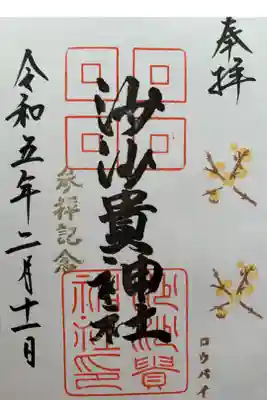 奉拝
沙沙貴神社
参拝記念
令和五年二月十一日
ロウバイ
沙沙貴
神社印